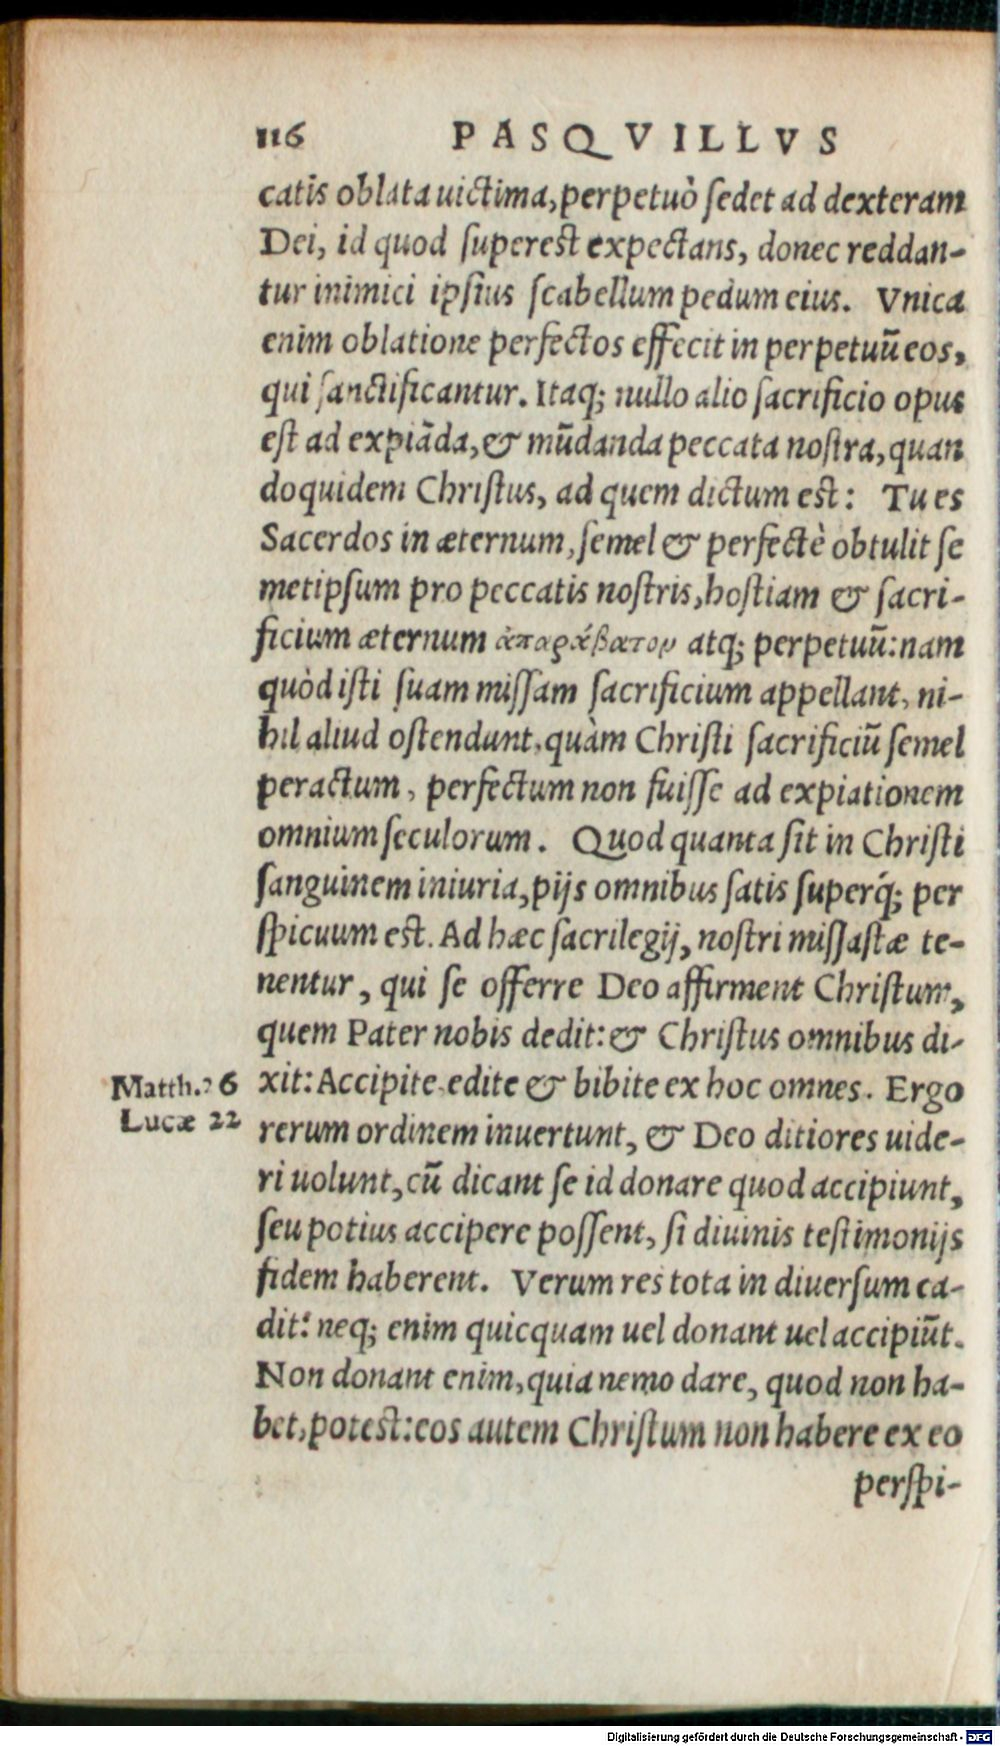 116 PASQVILLVS
catis oblata uictima, perpetuò ſedet ad dexteram
Dei, id quod ſupereſt expectans, donec reddan-
tur inimici ipſius ſcabellum pedum eius. Vnica
enim oblatione perfectos effecit in perpetuũ eos,
qui ſanctificantur. Itaq; nullo alio ſacrificio opus
eſt ad expiãda, & mũdanda peccata noſtra, quan
doquidem Chriſtus, ad quem dictum eſt: Tu es
Sacerdos in æternum, ſemel & perfectè obtulit ſe
metipſum pro peccatis noſtris, hoſtiam & ſacri-
ficium æternum ἀπαράβατον atq; perpetuũ: nam
quòd iſti ſuam miſſam ſacrificium appellant, ni-
hil aliud oſtendunt, quàm Chriſti ſacrificiũ ſemel
peractum, perfectum non fuiſſe ad expiationem
omnium ſeculorum. Quod quanta ſit in Chriſti
ſanguinem iniuria, pijs omnibus ſatis ſuperq́; per
ſpicuum eſt. Ad hæc ſacrilegij, noſtri miſſaſtæ te-
nentur, qui ſe offerre Deo affirment Chriſtum,
quem Pater nobis dedit: & Chriſtus omnibus di-
Matth. 26 xit: Accipite edite & bibite ex hoc omnes. Ergo
Lucæ 22 rerum ordinem inuertunt, & Deo ditiores uide-
ri uolunt, cũ dicant ſe id donare quod accipiunt,
ſeu potius accipere poſſent, ſi diuinis teſtimonijs
fidem haberent. Verum res tota in diuerſum ca-
dit: neq; enim quicquam uel donant uel accipiũt.
Non donant enim, quia nemo dare, quod non ha-
bet, poteſt: eos autem Chriſtum non habere ex eo
perſpi-
Digitalisierung gefördert durch die Deutsche Forschungsgemeinschaft - DFG